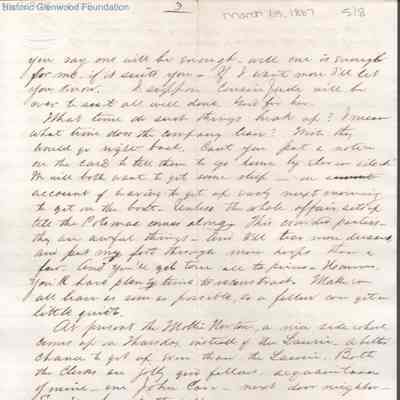 Historic Glenwood Foundation
3
March 1867
5/8
you say one will be enough - well one is enough
for me - if it suits you - If I want more I'll let
you know. I suppose Cousin Jude will be
over to see it all well done. Good for her.
What time do such things break up? I mean
what time does the company leave? Wish they
would go right back. Can't you put a note
on the card to tell them to go home by eleven o'clock?
We will both want to get some sleep - on
account of having to get up early next morning
to get on the boat - unless the whole affair sets up
till the Potomac comes along. This crowded parties -
they are awful things - and I'll tear more dresses
and put my foot through more hoops than a
few. And you'll get torn all to pieces - Heavens.
You'll have plenty time to reconstruct. Make em
all leave as soon as possible, so a fellow can get a
little quiet.
At present the Mollie Norton, a new side wheel
comes up on Thursday instead of the Laurie. A better
chance to get up even than the Laurie. Both
the Clerks are jolly good fellows, acquaintances
of mine - one John Carr - next door neighbor -